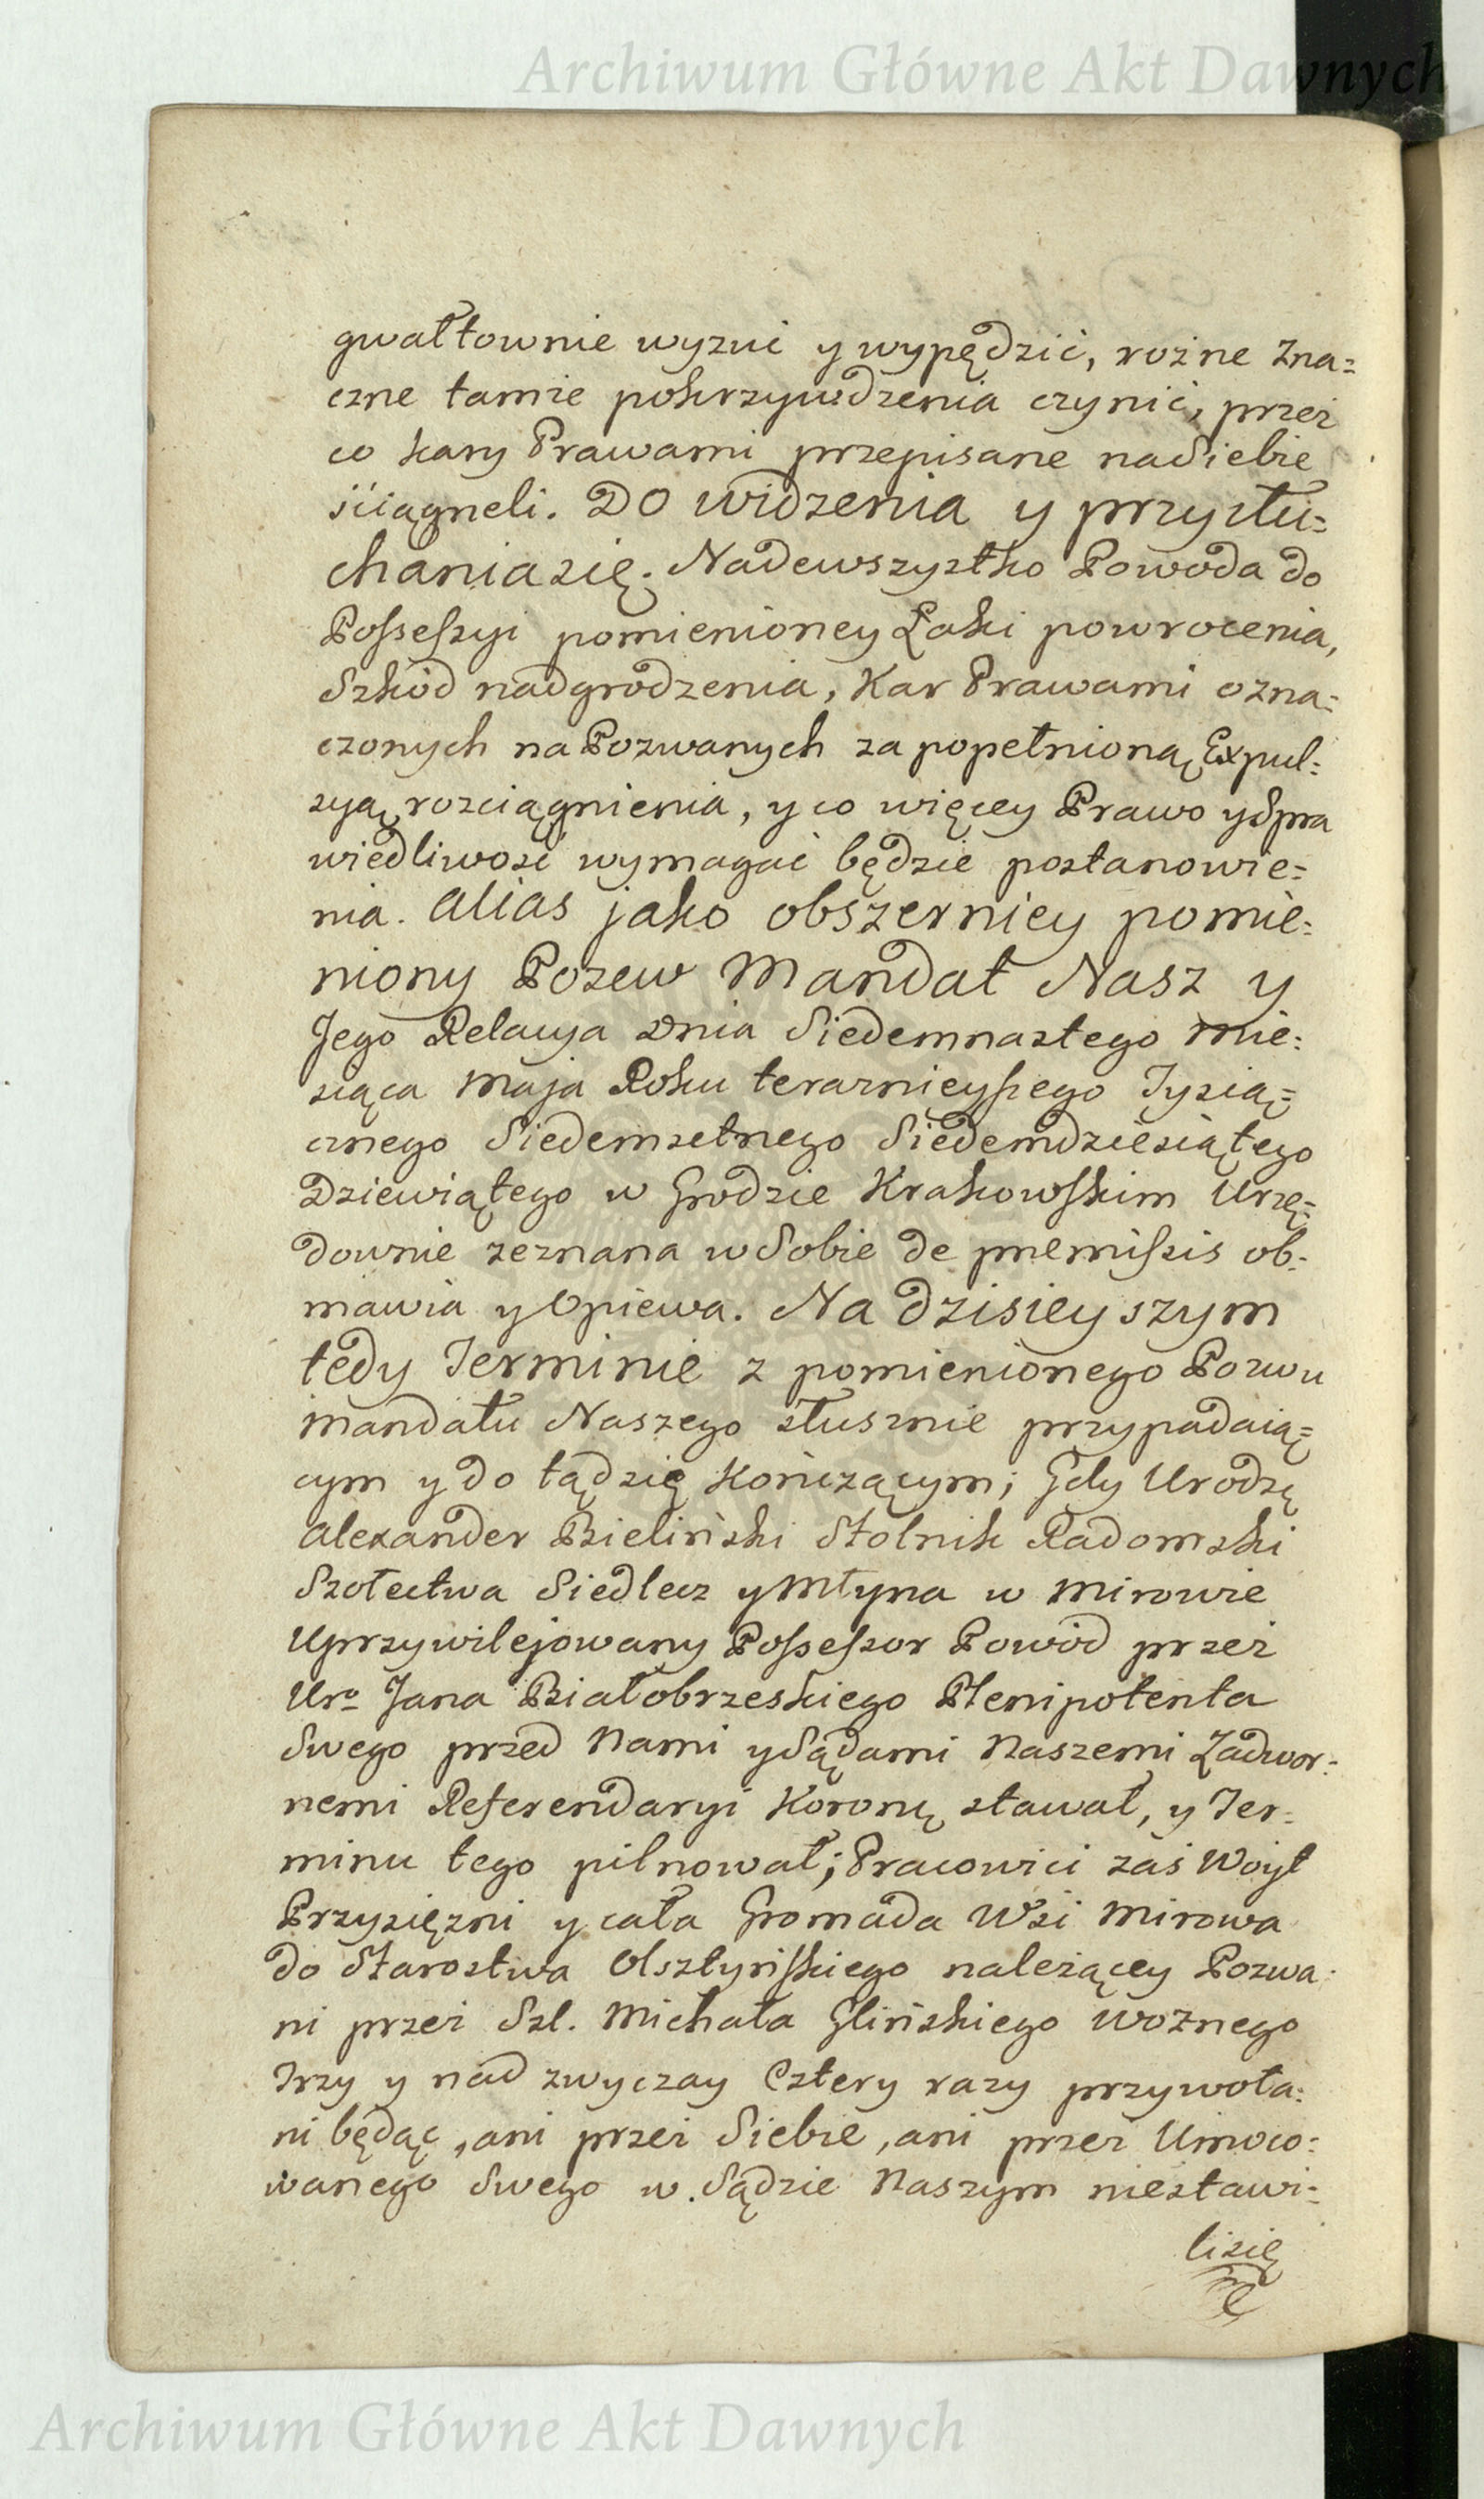 Archiwum Główne Akt Dawnych
gwałtownie wyzuć y wypędzić, rożne Zna=
czne tamże pokrzywdzenia czynić, przez
co kary Prawami przepisane na Siebie
ściągneli. DO widzenia y przysłu=
chania się. Nadewszystko Powoda do
Possessyi pomienioney Łąki powrocenia,
Szkód nadgrodzenia, Kar Prawami ozna=
czonych na Pozwanych za popełnioną Expul=
syą rozciągnienia, y co więcey Prawo y Spra
wiedliwość wymagać będzie postanowie=
nia. alias jako obszerniey pomie=
niony Pozew Mandat Nasz y
Jego Relacya Dnia Siedemnastego Mie=
siąca Maja Roku teraznieyszego Tysią=
cznego Siedemsetnego Siedemdziesiątego
Dziewiątego w Grodzie Krakowskim Urzę=
downie zeznana w Sobie de premissis ob=
mawia y Opiewa. Na dzisieyszym
tedy Terminie z pomienionego Pozwu
Mandatu Naszego słusznie przypadaią=
cym y do tąd się Kończącym; Gdy Urodzę
Alexander Bieliński Stolnik Radomski
Szołectwa Siedlecz y Młyna w Mirowie
Uprzywilejowany Possessor Powód przez
Uro Jana Białobrzeskiego Plenipotenta
Swego przed Nami y Sądami Naszemi Zadwor=
nemi Referendaryi Koronę stawał, y Ter=
minu tego pilnował; Pracowici zaś Woyt
Przysiężni y cała Gromada Wsi Mirowa
do Starostwa Olsztyńskiego należącey Pozwa=
ni przez Szl. Michała Glińskiego Woźnego
Trzy y nad zwyczay Cztery razy przywoła=
ni będąc, ani przez Siebie, ani przez Umoco=
wanego Swego w Sądzie Naszym niestawi=
li się
Archiwum Główne Akt Dawnych